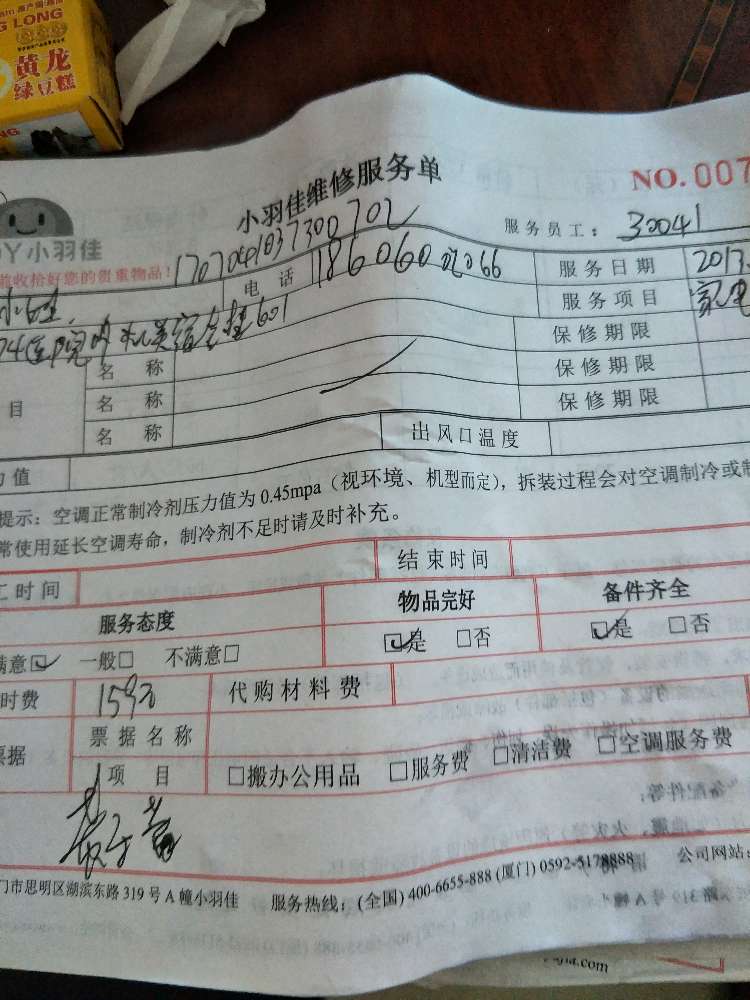 黄龙
绿豆糕
小羽佳维修服务单
NO.007
小羽佳
服务员工：30041
前收拾好您的贵重物品！
17070401037300702
电话
服务日期 2017.
服务项目 家电
保修期限
名称
保修期限
目 名称
保修期限
名称
出风口温度
力值
提示：空调正常制冷剂压力值为 0.45mpa（视环境、机型而定），拆装过程会对空调制冷或制
常使用延长空调寿命，制冷剂不足时请及时补充。
工时间
结束时间
服务态度
物品完好
备件齐全
满意☑ 一般□ 不满意□
☑是 □否
☑是 □否
时费 159元 代购材料费
票据 票据名称
项目 □搬办公用品 □服务费 □清洁费 □空调服务费
门市思明区湖滨东路 319 号 A 幢小羽佳 服务热线：(全国) 400-6655-888 (厦门) 0592-5178888 公司网站：